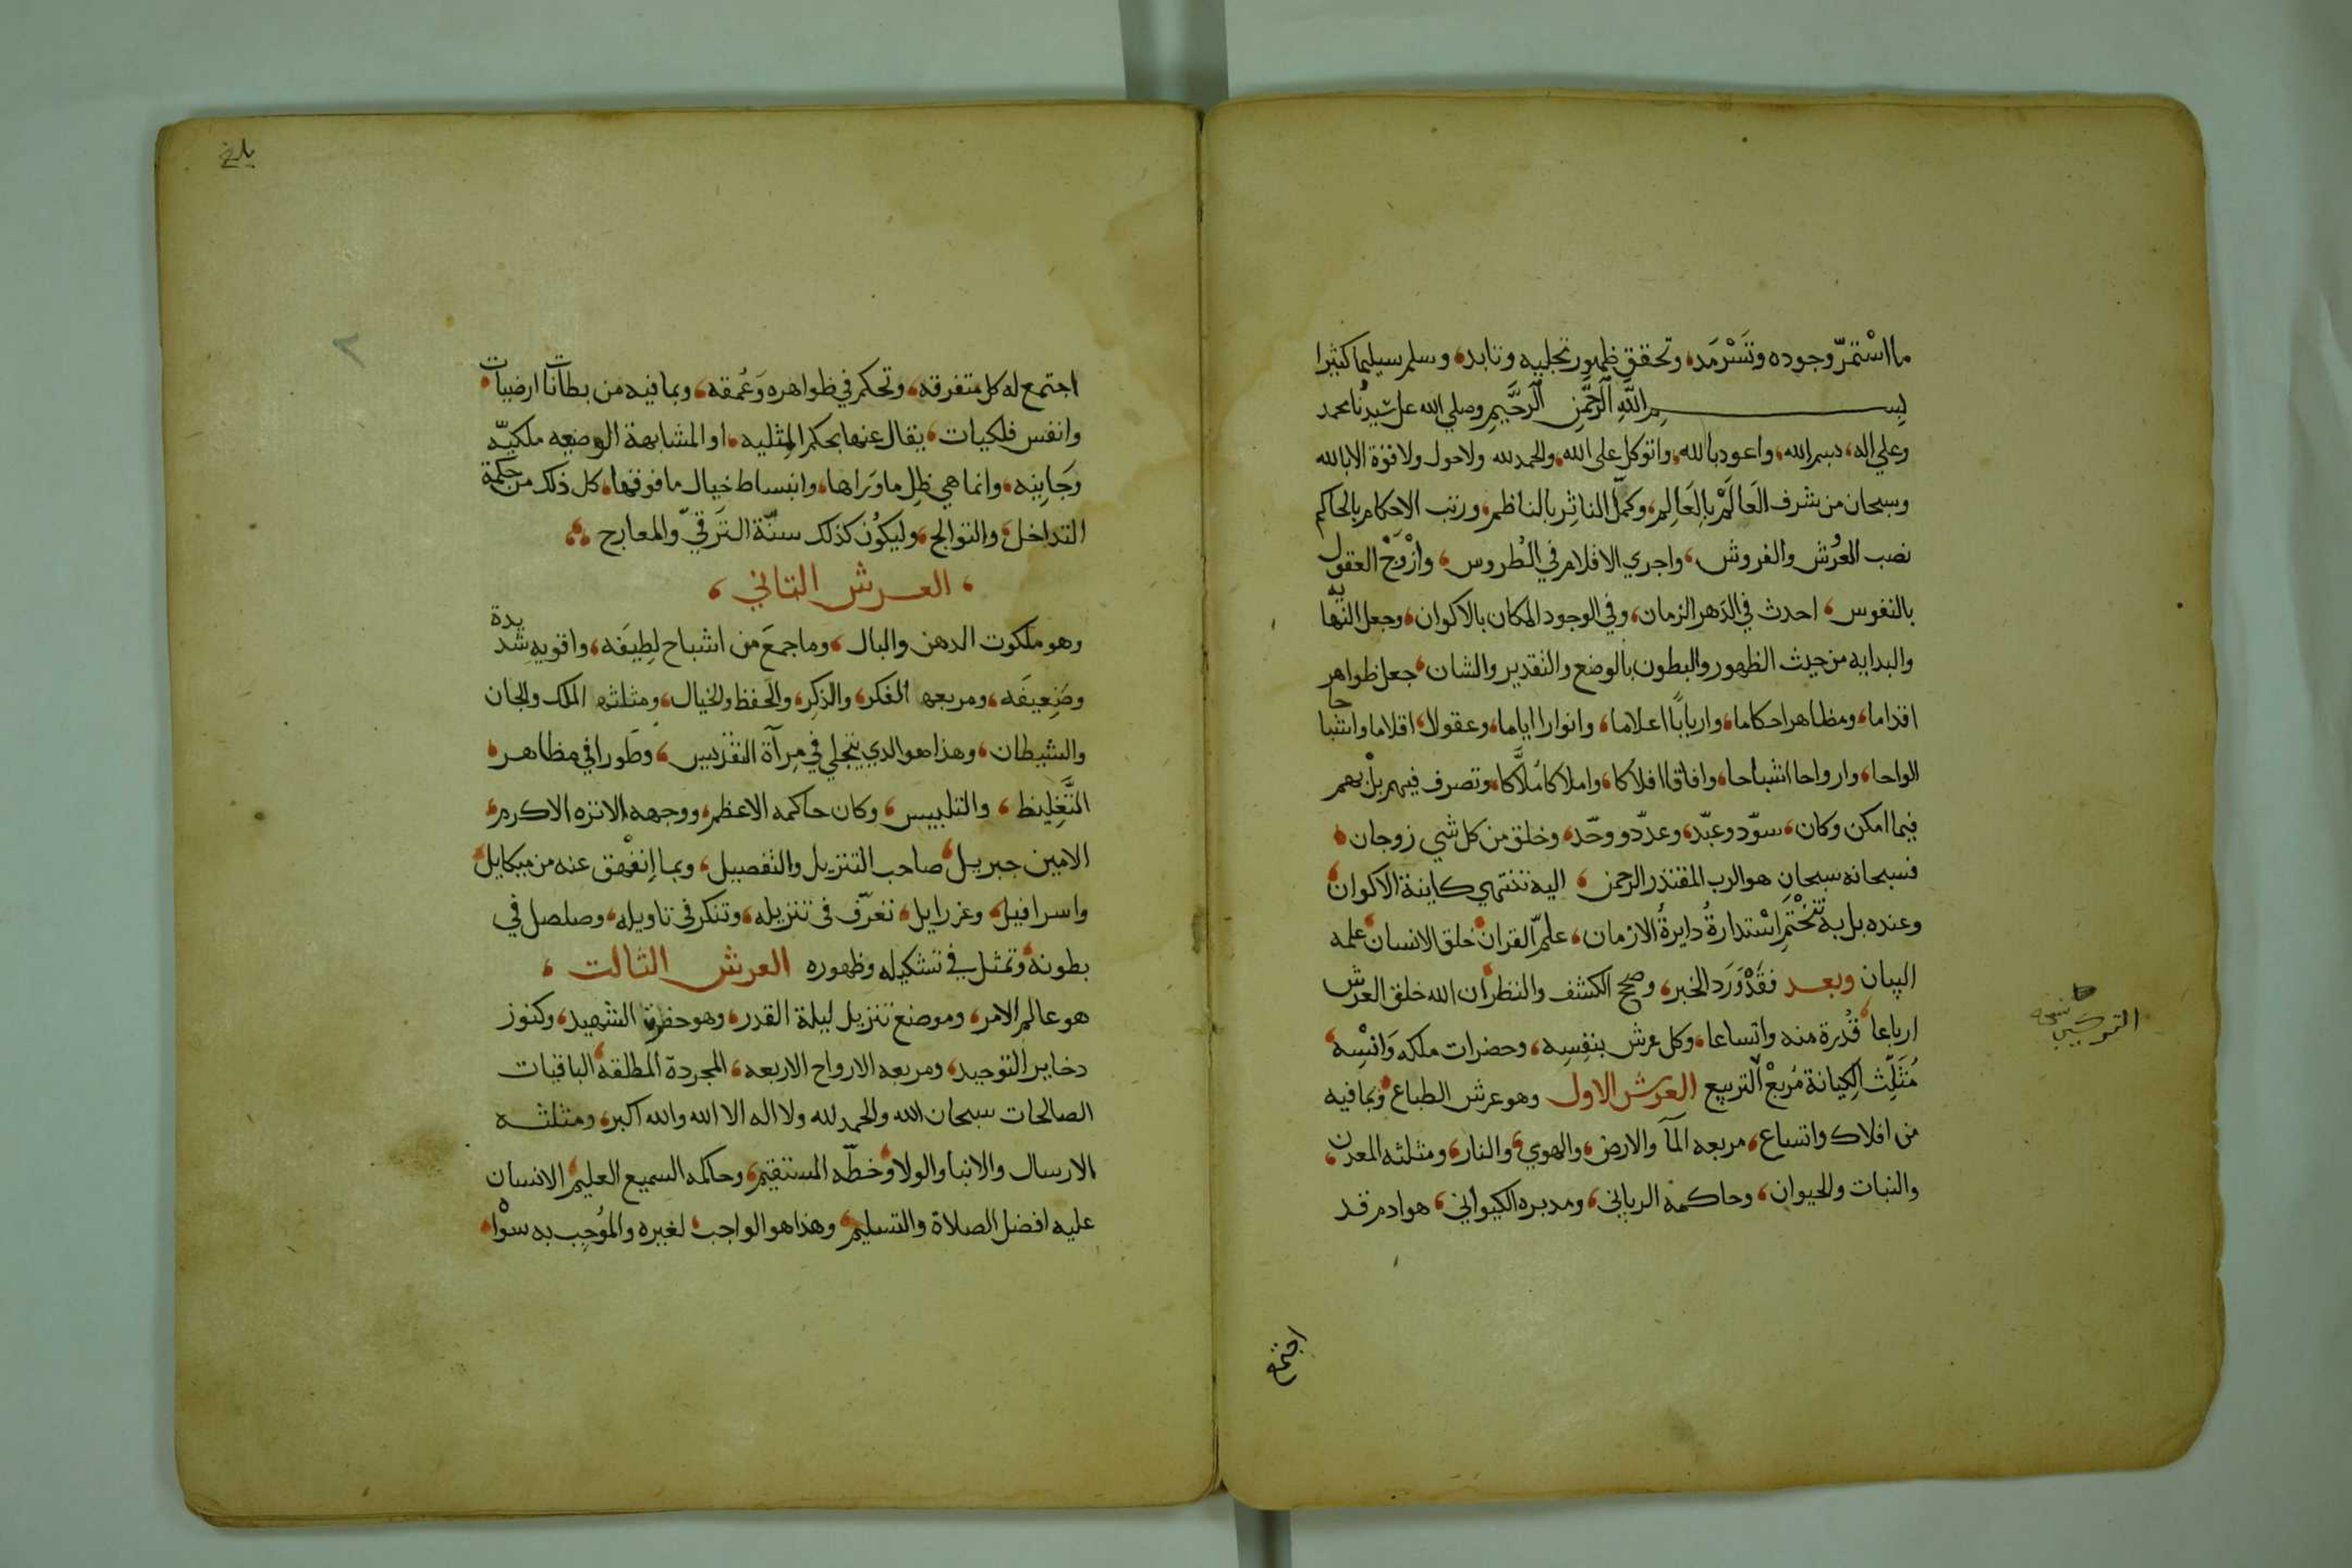 ما اسْتمرّ وجوده وتَسْرمَد، وتحقق ظهور تجليه وتابد، وسلم تسليما كثيرا
بسم اللَّهِ الرَّحْمَنِ الرَّحِيمِ وصلي الله على سيدنا محمد
وعلي اله، بسم الله، واعوذ بالله، واتوكل على الله، والحمد لله ولا حول ولا قوة الا بالله
وسبحان من شرف العَالَمْ بالعَالِم، وكمّل الناثِر بالناظم، ورتب الاحكام بالحاكم
نصب العُرُش والفروش، واجري الاقلام في الطُروس، وازْوَجْ العقول
بالنفوس، احدث في الدَهر الزمان، وفي الوجود المكان بالاكوان، وجعل النهايه
والبدايه من حيث الظهور والبطون بالوضع والتقدير والشان، جعل ظواهر
اقداما، ومظاهر احكاما، واربابًا اعلاما، وانوارا اياما، وعقولا، اقلاما واشباحا
الواحا، وارواحا اشباحا، وافاقا افلاكا، واملاكا مُلَّاكا، وتصرف فيهم بل بهم
فيما امكن وكان، سوّد وعبّد، وعدّد ووحّد، وخلق من كل شي زوجان،
فسبحانه سبحان هو الرب المقتدر الرحمن، اليه تنتهي كاينة الاكوان،
وعنده بل به تَخْتَتِم اسْتدارةُ دايرةُ الازمان، علمّ القران، خلق الانسان، علمه
البيان وبعد فقَدْوَرَد الخبر، وصحّ الكشف والنظر، ان الله خلق العرش
ارباعا، قُدرة منه واتساعا، وكل عرش بنفسِه، وحضرات ملكه وَانْسِه،
مُثَلِّث الكِيانة مُربعْ التربيع العرش الاول وهو عرش الطباع، وبما فيه
من افلاك واتساع، مربعه المآ والارض، والهوي، والنار، ومثلثه المعدن،
والنبات والحيوان، وحاكمه الرباني، ومدبره الكيواني، هو ادم قد
اجتمع
نسخه
بلغ
٢
اجتمع له كل متفرقه، وتحكم في ظواهره وَعُمقه، وبما فيه من بطانات ارضيات،
وانفس فلكيات، يقال عنها بحكم المِثليه، او المشابهة الوضعيه ملكيّه
وَجَانِيه، وانما هي ظِل ما وَراها، وانبساط خيال ما فوقها، كل ذلك من حكمة
التداخل، والتوالج، وليكُون كذلك سنّة الترَقيّ والمعارج
، العرش الثاني ،
وهو ملكوت الدهن والبال، وما جمعَ من اشباح لطِيفَه، واقويه شديدة
وضعِيفَه، ومربعه الفكر، والذِكر، والحفظ والخيال، ومثلثه الملك والجان
والشيطان، وهذا هو الدي يتجلي في مِرآة التقديس، وطَورا في مظاهر،
التَّغلِيط، والتلبيس، وكان حاكمه الاعظم، ووجهه الانزه الاكرم،
الامين جبريل، صاحب التنزيل والتفصيل، وبما انفْهق عنه من ميكايل،
واسرافيل، وعزرايل، تعرّف في تنزيله، وتنكر في تاويله، وصلصل في
بطونه، وتمثل في تشكيله وظهوره العرش الثالث ،
هو عالم الامر، وموضع تنزيل ليلة القدر، وهو حضرة الشهيد، وكنوز
دخاير التوحيد، ومربعه الارواح الاربعه، المجردة المطلقة، الباقيات
الصالحات سبحان الله والحمد لله ولا اله الا الله والله اكبر، ومثلثه
الارسال والانبا والولا، وخطّه المستقيم، وحاكمه السميع العليم، الانسان
عليه افضل الصلاة والتسليم، وهذا هو الواجب، لغيره والمُوجِب به سوْا،